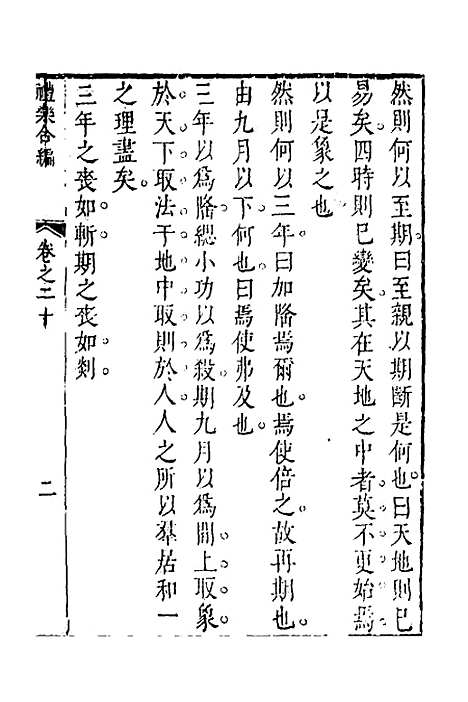 然則何以至期。曰至親以期斷是何也。曰天地則已
易矣。四時則已變矣。其在天地之中者。莫不更始焉。
以是象之也
然則何以三年。曰加隆焉爾也。焉使倍之。故再期也。
由九月以下。何也。曰焉使弗及也。
三年以爲隆。緦小功以爲殺。期九月以爲間。上取象
於天。下取法于地。中取則於人。人之所以羣居和一
之理盡矣。
三年之喪。如斬。期之喪。如剡。
禮樂合編
卷之二十
二